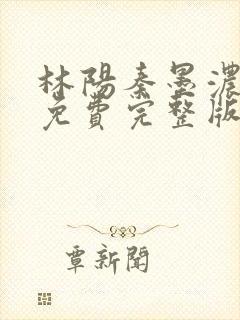 林陽秦墨濃
免費完整版
覃新聞